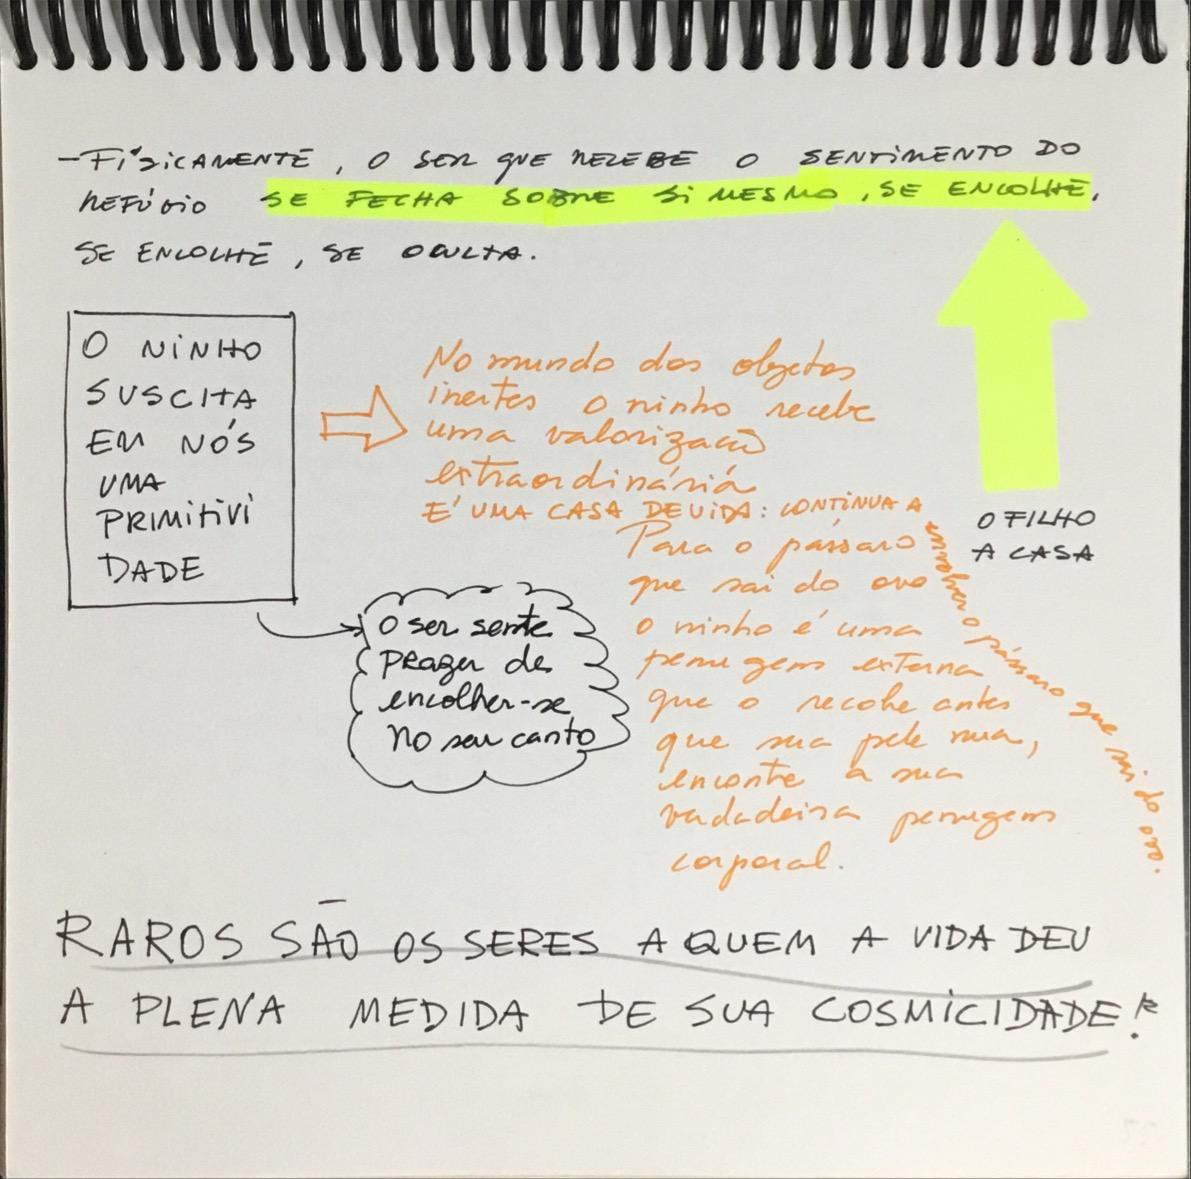 - FÍSICAMENTE, O SER QUE RECEBE O SENTIMENTO DO
REFÚGIO SE FECHA SOBRE SI MESMO, SE ENCOLHE,
SE ENCOLHE, SE OCULTA.
O NINHO
SUSCITA
EM NÓS
UMA
PRIMITIVI
DADE
No mundo dos objetos
inertes o ninho recebe
uma valorização
extraordináriá
E' UMA CASA DE VIDA: CONTINUA A
envolver o pássaro que sai do ovo.
O FILHO
A CASA
Para o pássaro
que sai do ovo
o ninho é uma
penugem externa
que o recobre antes
que sua pele nua,
encontre a sua
verdadeira penugem
corporal.
O ser sente
prazer de
encolher-se
no seu canto
RAROS SÃO OS SERES A QUEM A VIDA DEU
A PLENA MEDIDA DE SUA COSMICIDADE!